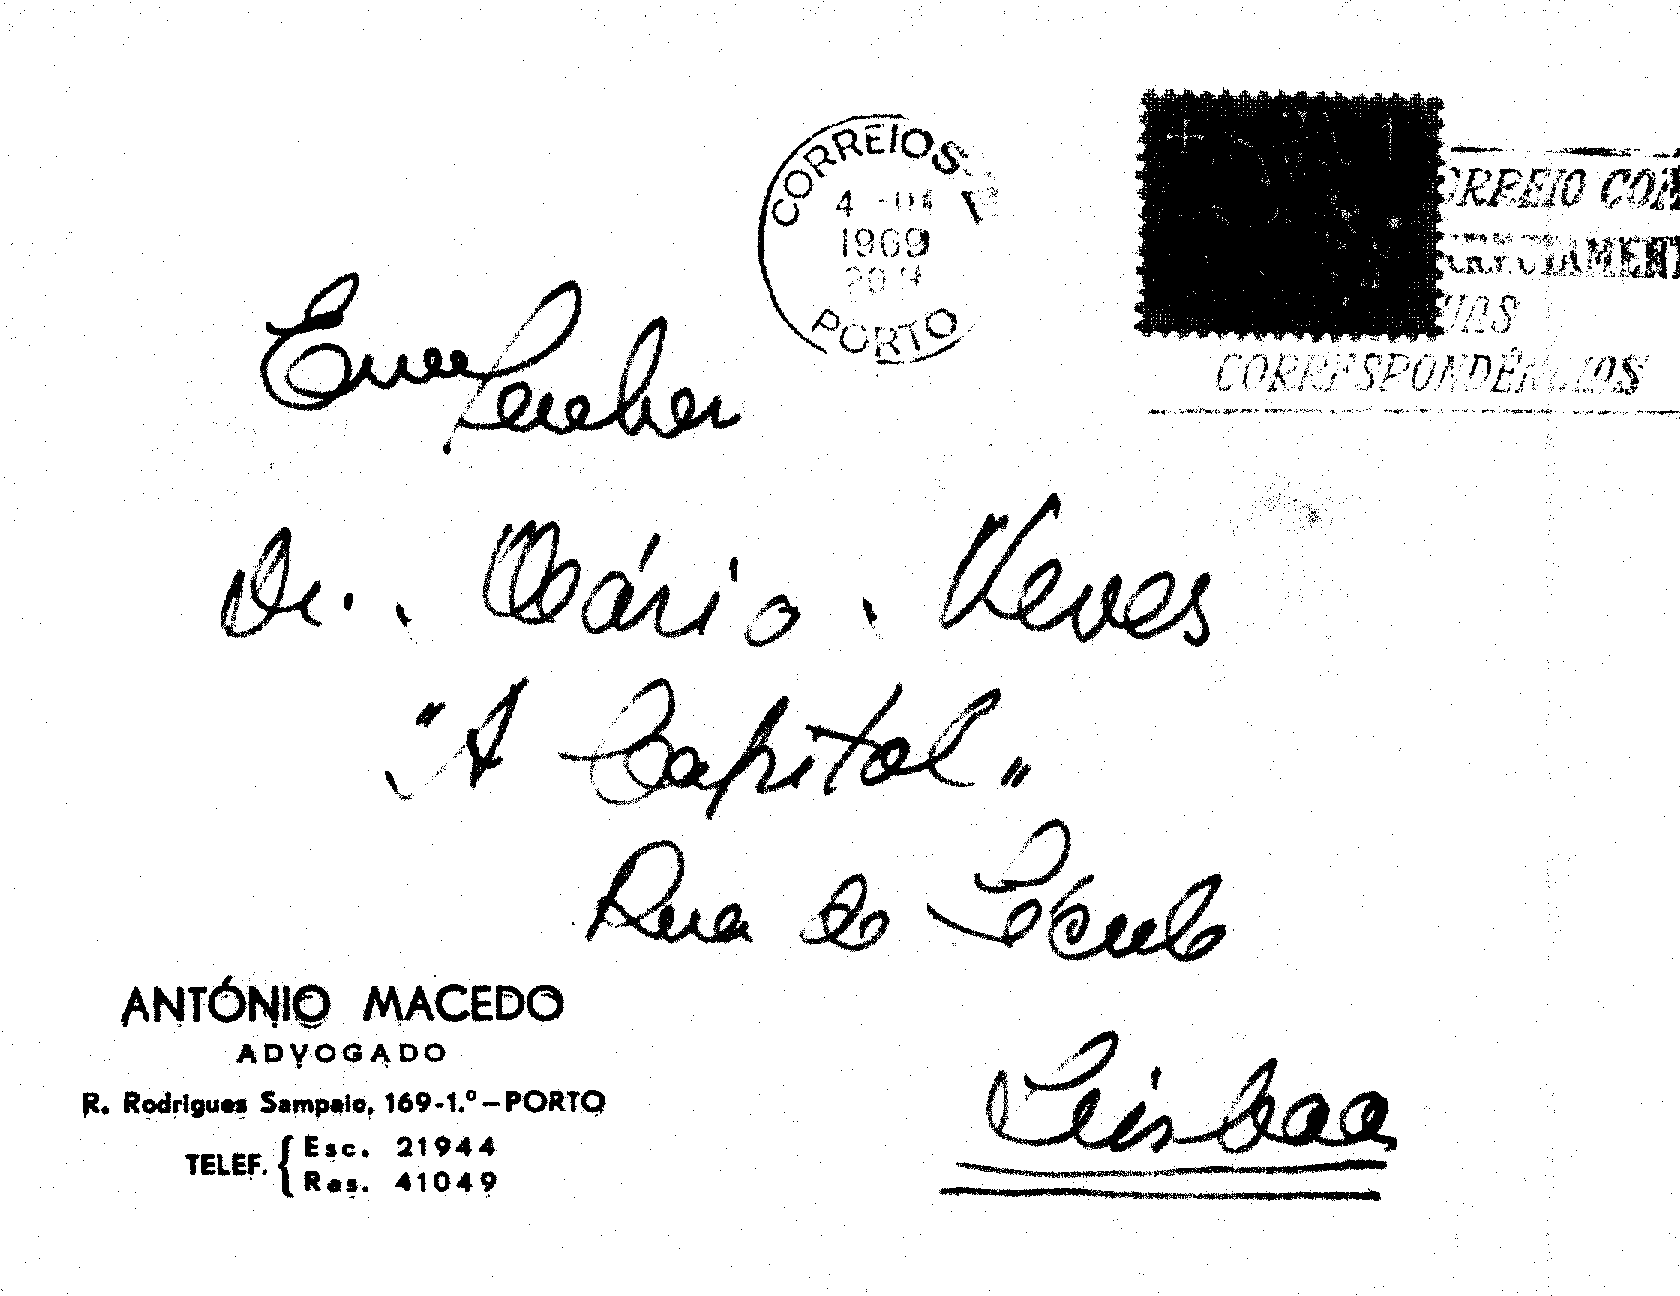 CORREIOS
4 -
1969
20
PORTO
CORRESPONDÊNCIAS
Exmo Senhor
Dr. Mário Neves
"A Capital"
Rua do Século
Lisboa
ANTÓNIO MACEDO
ADVOGADO
R. Rodrigues Sampaio, 169-1.º – PORTO
TELEF. { Esc. 21944
Res. 41049